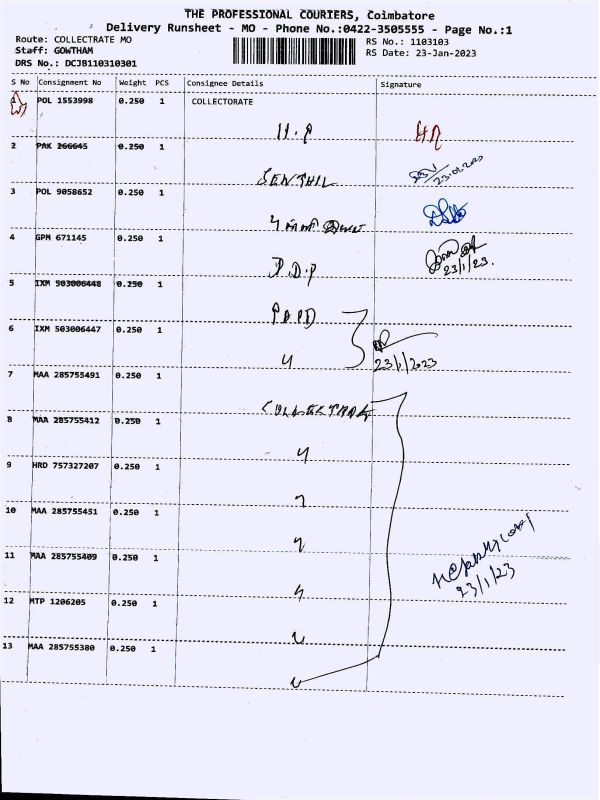 THE PROFESSIONAL COURIERS, Coimbatore
Delivery Runsheet - MO - Phone No.:0422-3505555 - Page No.:1
Route: COLLECTRATE MO
RS No.: 1103103
Staff: GOWTHAM
RS Date: 23-Jan-2023
DRS No.: DCJB110310301
S No Consignment No Weight PCS Consignee Details Signature
1 POL 1553998 0.250 1 COLLECTORATE
H.P
2 PAK 266645 0.250 1
SENTHIL
23.01.2023
3 POL 9058652 0.250 1
4 GPM 671145 0.250 1
P.D.P
23/1/23.
5 IXM 503006448 0.250 1
6 IXM 503006447 0.250 1
23/1/2023
7 MAA 285755491 0.250 1
8 MAA 285755412 0.250 1
9 HRD 757327207 0.250 1
10 MAA 285755451 0.250 1
11 MAA 285755409 0.250 1
23/1/23
12 MTP 1206205 0.250 1
13 MAA 285755380 0.250 1